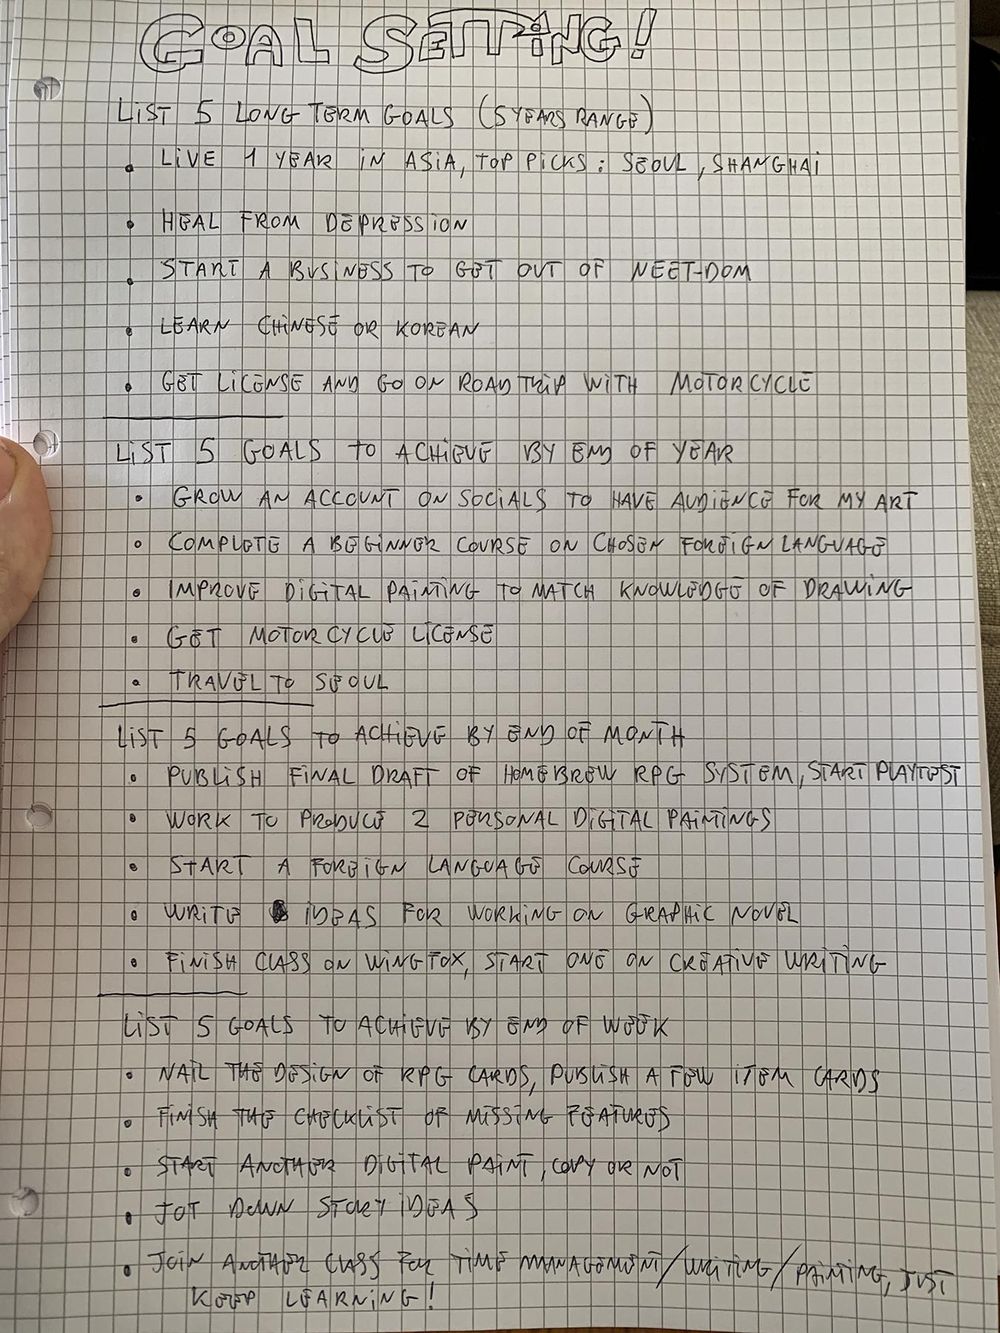 GOAL SETTING!
LIST 5 LONG TERM GOALS (5 YEARS RANGE)
• LIVE 1 YEAR IN ASIA, TOP PICKS: SEOUL, SHANGHAI
• HEAL FROM DEPRESSION
• START A BUSINESS TO GET OUT OF NEET-DOM
• LEARN CHINESE OR KOREAN
• GET LICENSE AND GO ON ROAD TRIP WITH MOTORCYCLE
LIST 5 GOALS TO ACHIEVE BY END OF YEAR
• GROW AN ACCOUNT ON SOCIALS TO HAVE AUDIENCE FOR MY ART
• COMPLETE A BEGINNER COURSE ON CHOSEN FOREIGN LANGUAGE
• IMPROVE DIGITAL PAINTING TO MATCH KNOWLEDGE OF DRAWING
• GET MOTORCYCLE LICENSE
• TRAVEL TO SEOUL
LIST 5 GOALS TO ACHIEVE BY END OF MONTH
• PUBLISH FINAL DRAFT OF HOMEBREW RPG SYSTEM, START PLAYTEST
• WORK TO PRODUCE 2 PERSONAL DIGITAL PAINTINGS
• START A FOREIGN LANGUAGE COURSE
• WRITE IDEAS FOR WORKING ON GRAPHIC NOVEL
• FINISH CLASS ON WINGFOX, START ONE ON CREATIVE WRITING
LIST 5 GOALS TO ACHIEVE BY END OF WEEK
• NAIL THE DESIGN OF RPG CARDS, PUBLISH A FEW ITEM CARDS
• FINISH THE CHECKLIST OF MISSING FEATURES
• START ANOTHER DIGITAL PAINT, COPY OR NOT
• JOT DOWN STORY IDEAS
• JOIN ANOTHER CLASS FOR TIME MANAGEMENT/WRITING/PAINTING, JUST
KEEP LEARNING!